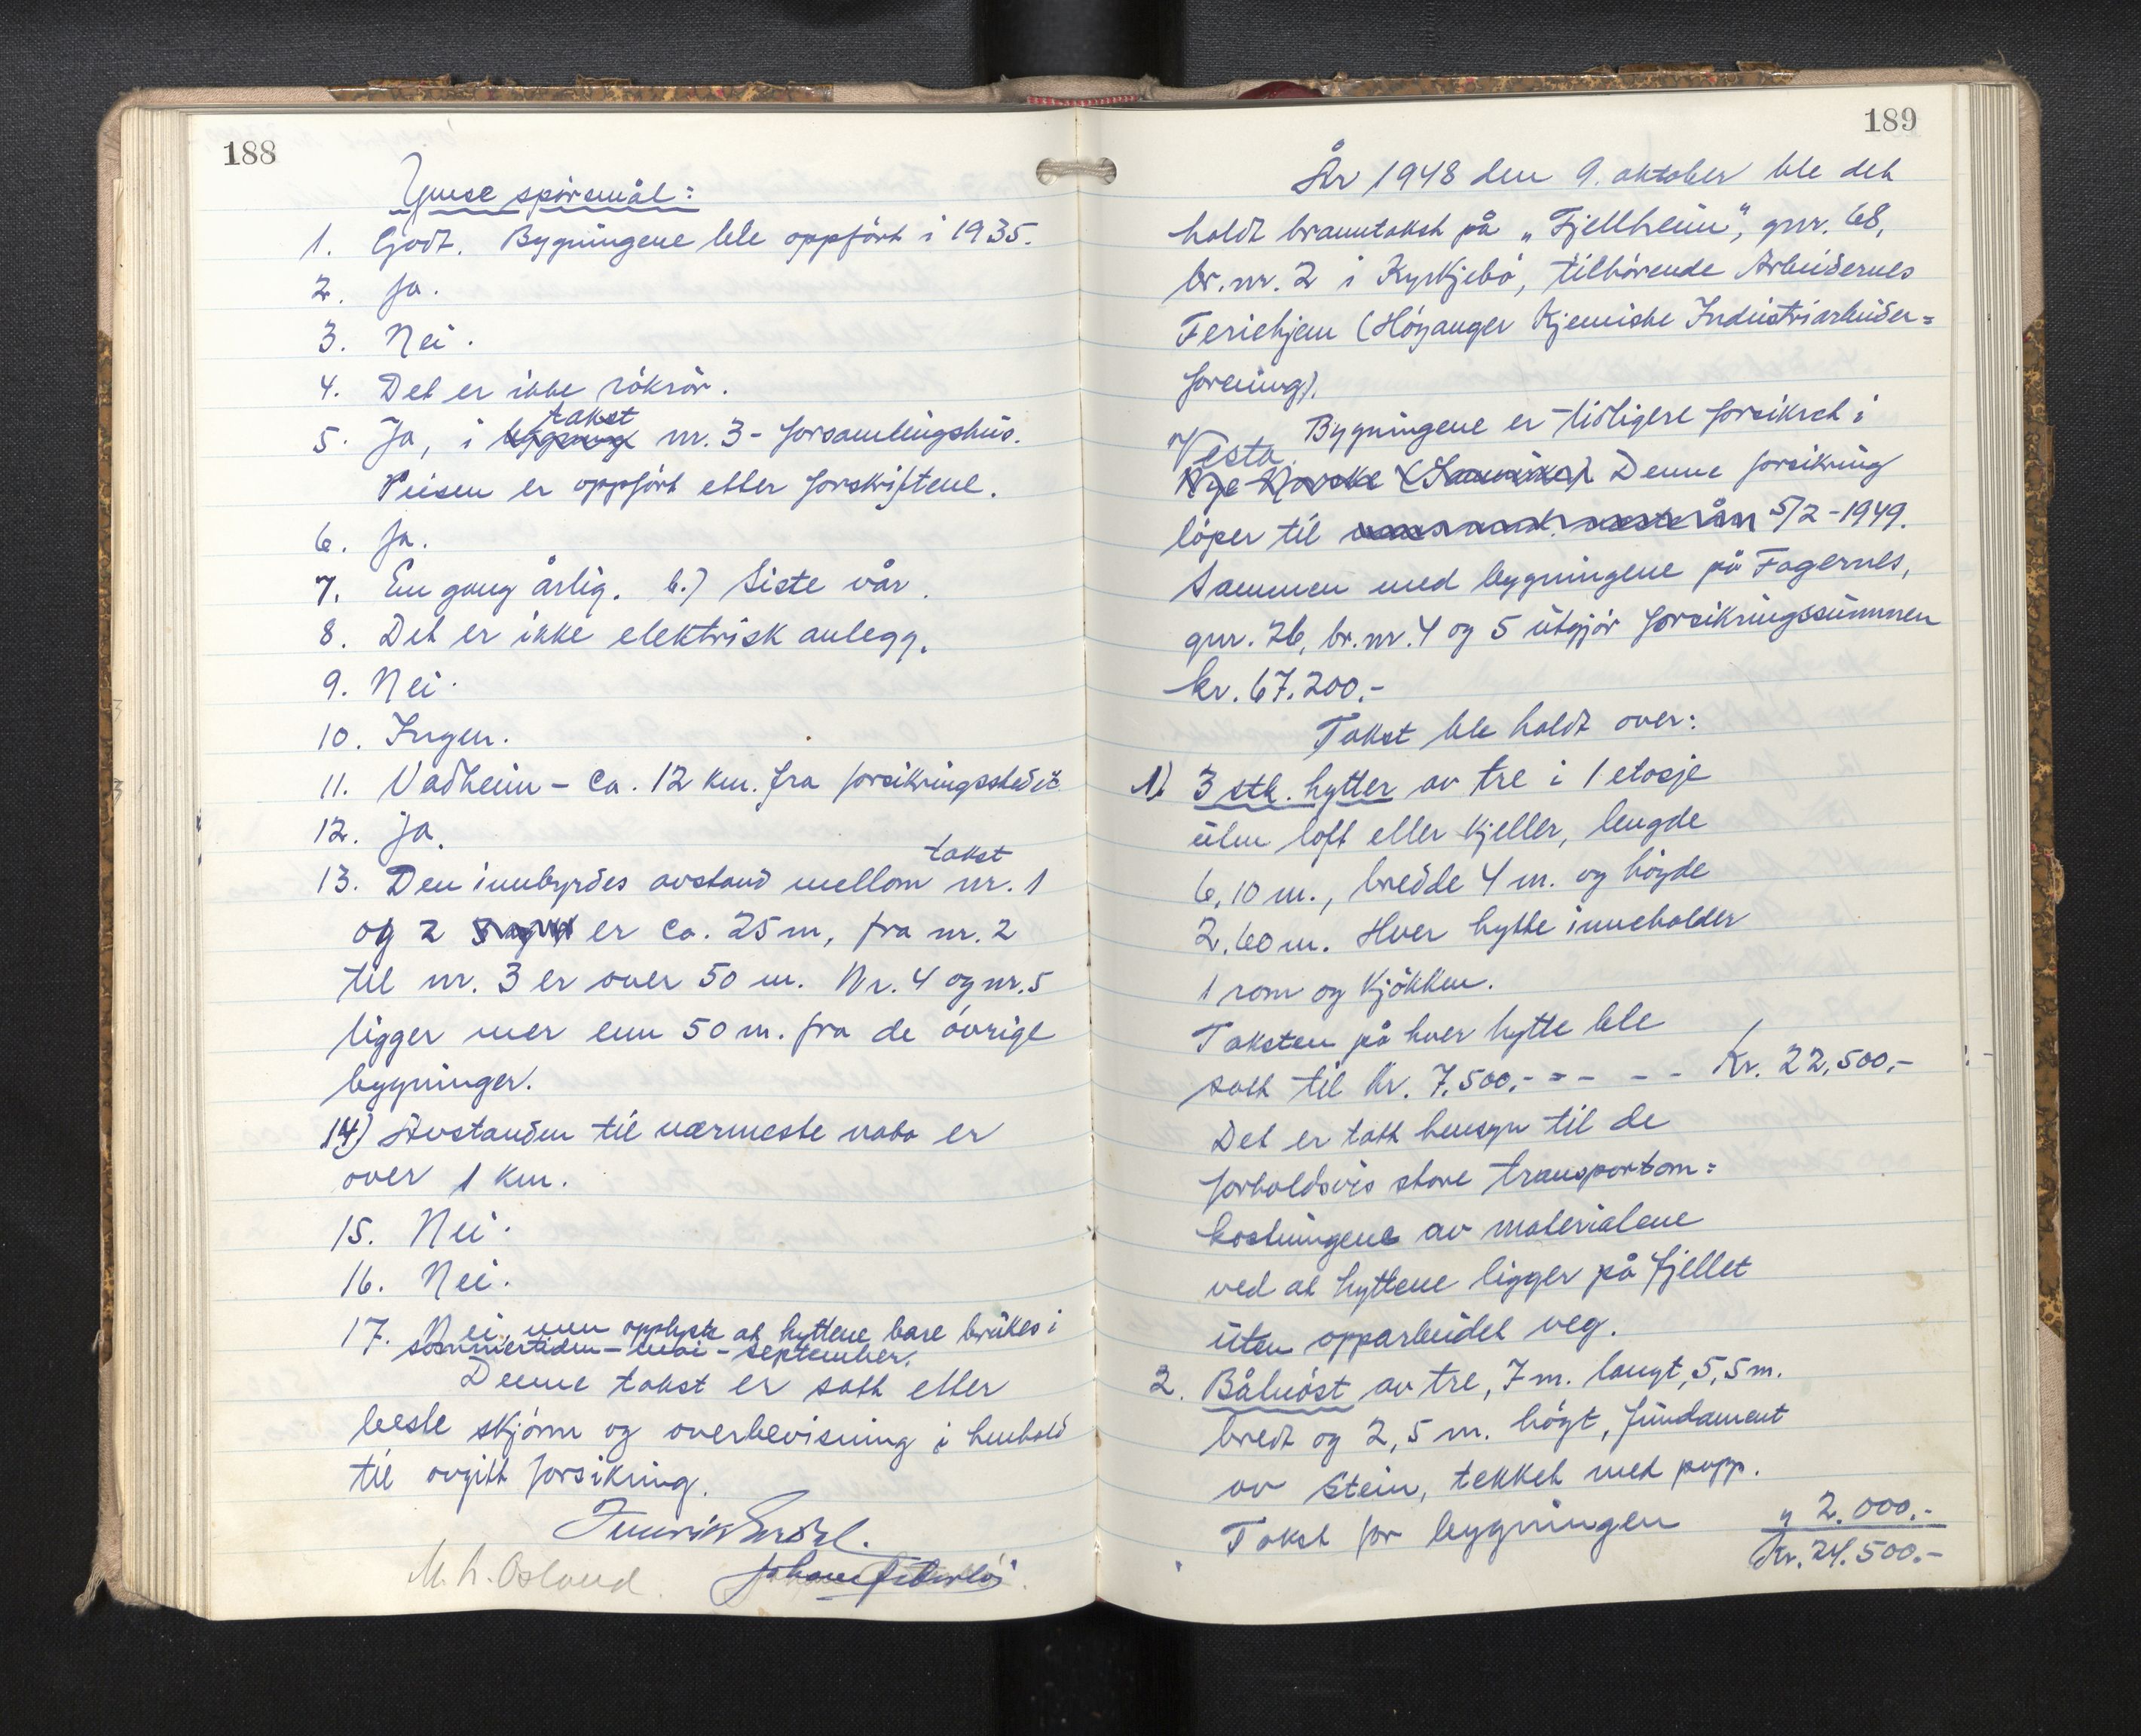 188
Ymse spørsmål:
1. Godt. Bygningene ble oppført i 1935.
2. Ja.
3. Nei.
4. Det er ikke rökrör.
5. Ja, i bygning takst nr. 3 - forsamlingshus.
Peisen er oppfört etter forskriftene.
6. Ja.
7. En gang årlig. b.) Siste vår.
8. Det er ikke elektrisk anlegg.
9. Nei.
10. Ingen.
11. Vadheim - ca. 12 km. fra forsikringsstedet
12. Ja.
13. Den innbyrdes avstand mellom takst nr. 1
og 2 er ca. 25 m, fra nr. 2
til nr. 3 er over 50 m. Nr. 4 og nr. 5
ligger mer enn 50 m. fra de övrige
bygninger.
14) Avstanden til nærmeste nabo er
over 1 km.
15. Nei.
16. Nei.
17. Nei, men opplyste at hyttene bare brukes i
sommertiden - mai - september.
Denne takst er satt etter
beste skjönn og overbevisning i henhold
til avgitt forsikring.
M. A. Osland.
189
År 1948 den 9. oktober ble det
holdt branntakst på „Fjellheim", gnr. 68,
br. nr. 2 i Kyrkjebö, tilhörende Arbeidernes
Feriehjem (Höyanger Kjemiske Industriarbeider=
forening).
Bygningene er tidligere forsikret i
Vesta.
Nye Norske Denne forsikring
löper til 5/2 - 1949.
Sammen med bygningene på Fagernes,
gnr. 76, br. nr. 4 og 5 utgjör forsikringssummen
kr. 67.200.-
Takst ble holdt over:
1) 3 stk. hytter av tre i 1 etasje
uten loft eller kjeller, lengde
6,10 m., bredde 4 m. og höyde
2.60 m. Hver hytte inneholder
1 rom og kjökken.
Taksten på hver hytte ble
satt til kr. 7.500.- = - - - Kr. 22,500,-
Det er tatt hensyn til de
forholdsvis store transportom=
kostningene av materialene
ved at hyttene ligger på fjellet
uten opparbeidet veg.
2. Båtnöst av tre, 7 m. langt, 5,5 m.
bredt og 2,5 m. högt, fundament
av stein, tekket med papp.
Takst for bygningen " 2.000.-
Kr. 24.500.-